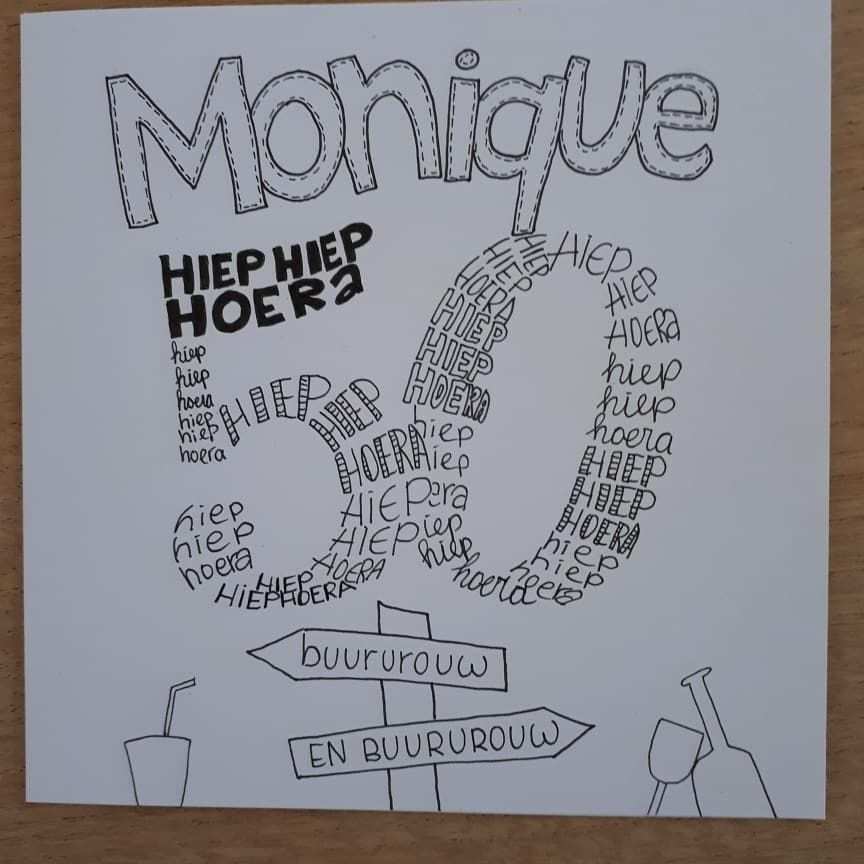 Monique
HIEP HIEP
HOERa
hiep
hiep
hoera
hiep
hiep
hoera
HIEP
HIEP
HOERA
HIEP
HIEP
HOERA
HIEP
HIEP HOERA
hiep
hiep
hoera
HIEP
HOERA
HIEP
HIEP
HOERA
hiep
iep
era
iep
hiep
hoera
HIEP
HIEP
HOERA
hiep
hiep
hoera
HIEP
HIEP
HOERA
hiep
hiep
hoera
buurvrouw
EN BUURVROUW